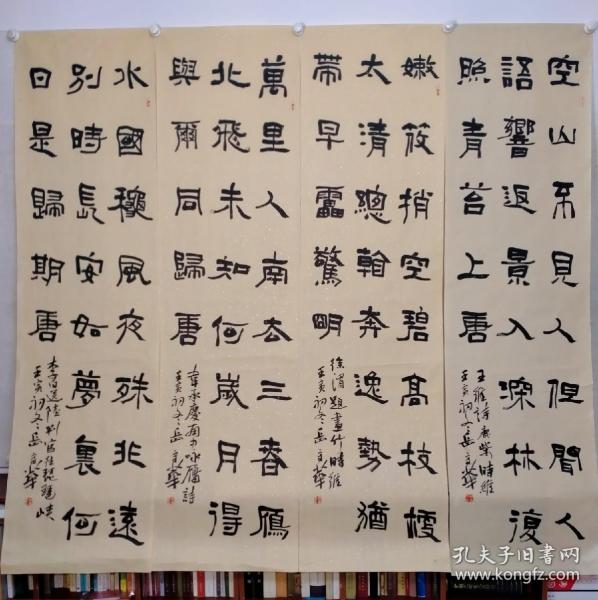 空山不見人但聞人
語響返景入深林復
照青苔上唐
王維詩鹿柴時維
壬寅初冬岳
嫩筱捎空碧高枝梗
太清總翰奔逸勢猶
帶早靁驚明
徐渭題畫竹時維
壬寅初冬岳
萬里人南去三春鴈
北飛未知何歲月得
與爾同歸唐
韋承慶南中詠鴈詩
壬寅初冬岳
水國穐風夜殊非遠
別時長安如夢裏何
日是歸期唐
李白送陸判官往琵琶峽
壬寅初冬岳
孔夫子旧书网
www.kongfz.com